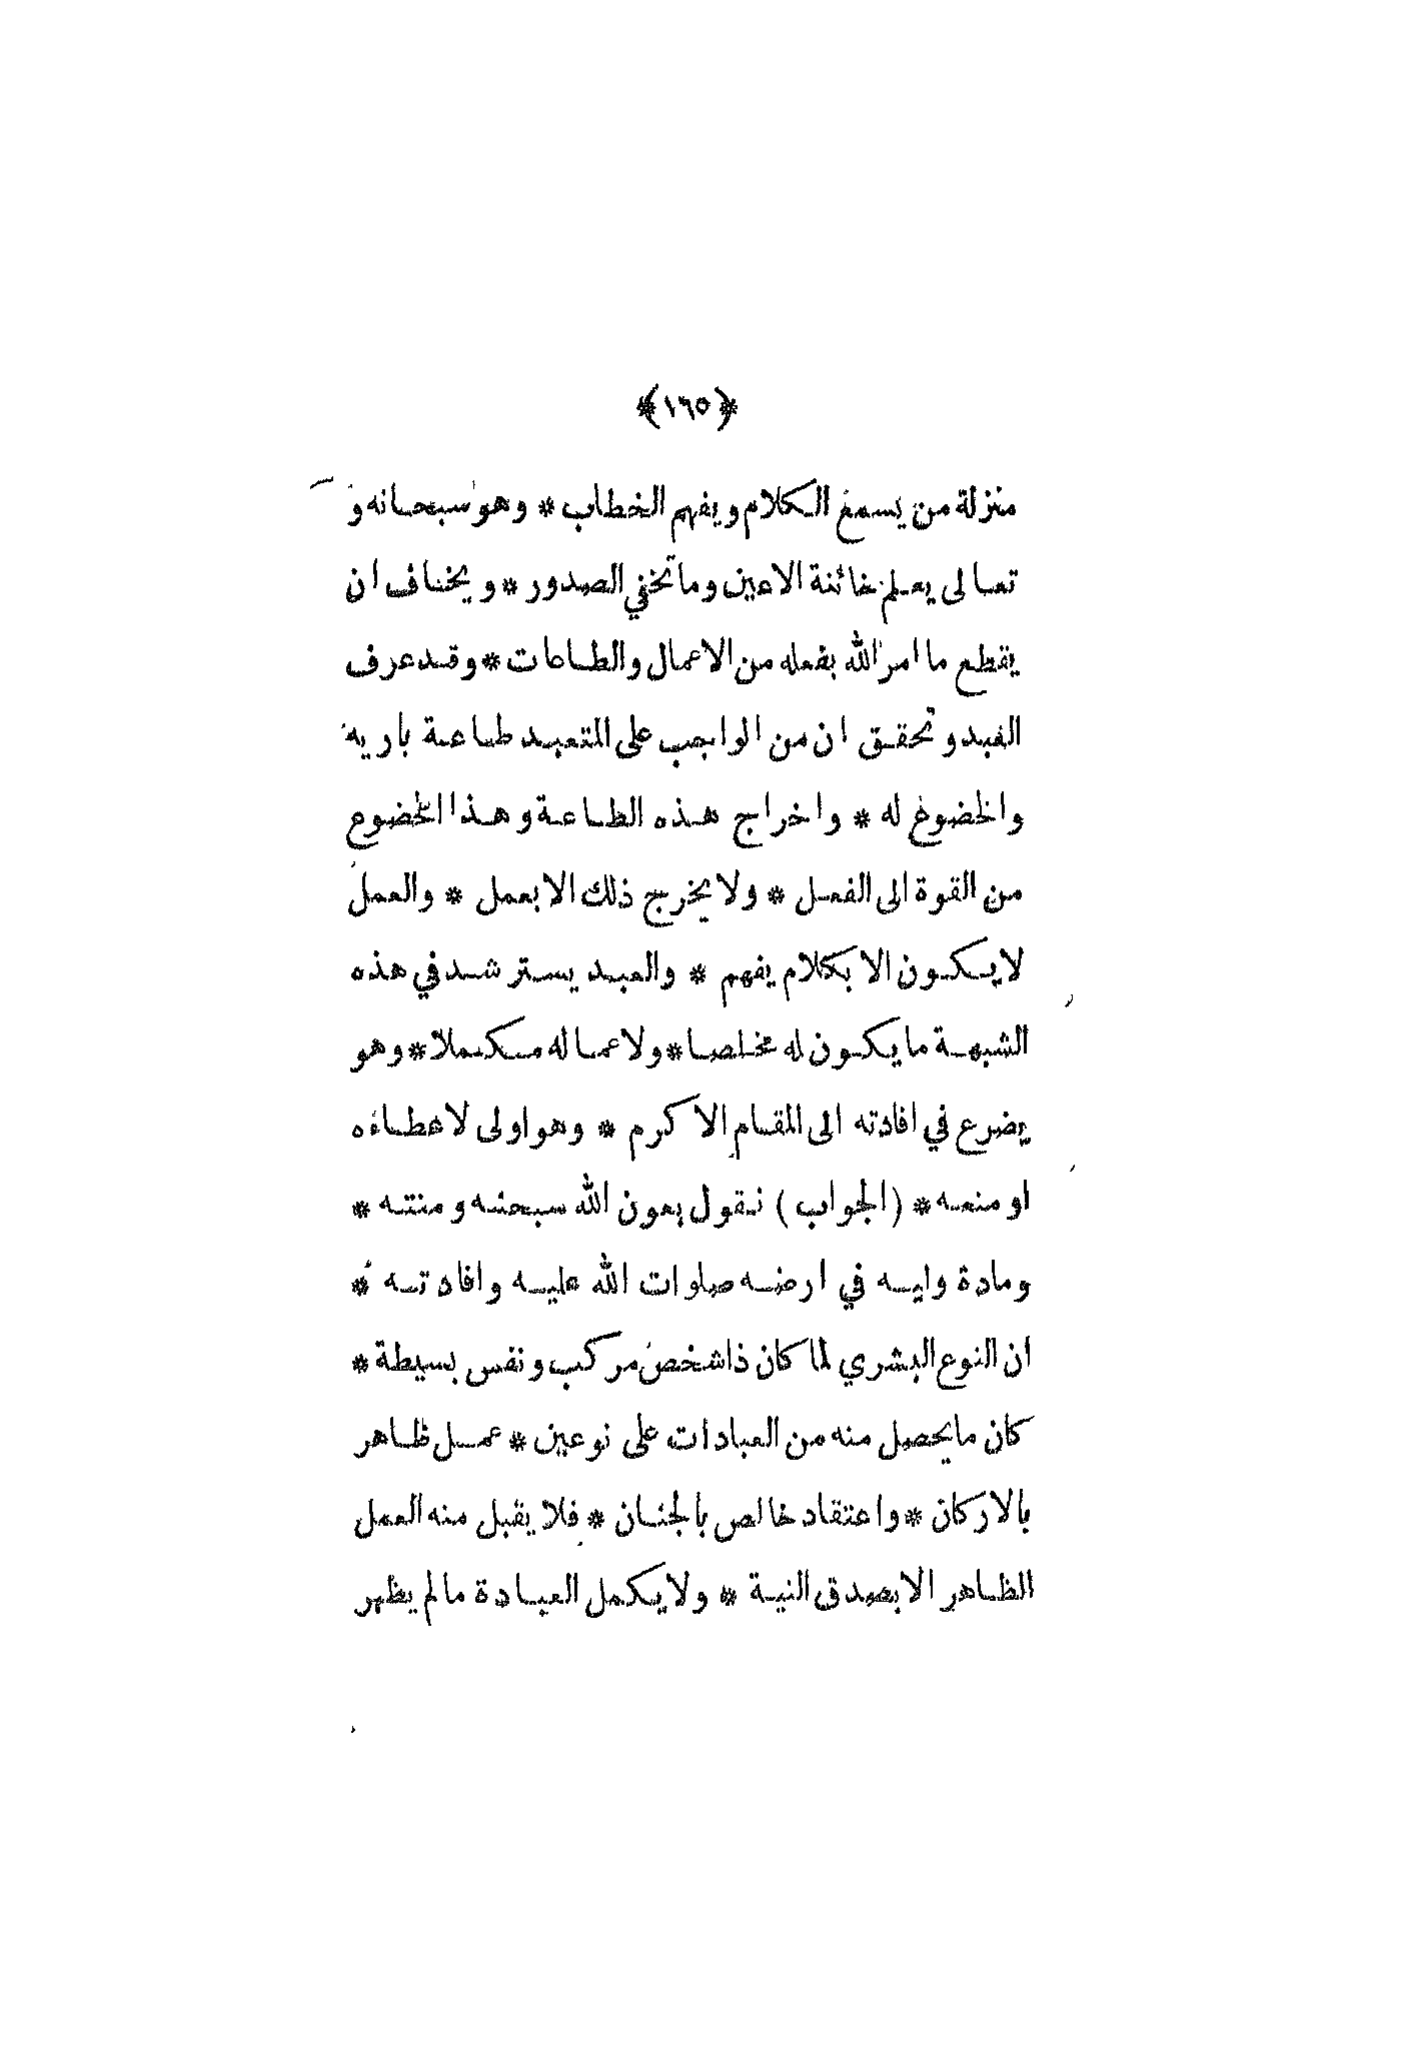 ﴿١٦٥﴾
منزلة من يسمع الكلام ويفهم الخطاب * وهو سبحانه و
تعالى يعلم خائنة الاعين وما تخفي الصدور * ويخاف ان
يقطع ما امر الله بفعله من الاعمال والطاعات * وقد عرف
العبد وتحقق ان من الواجب على المتعبد طاعة باريه
والخضوع له * واخراج هذه الطاعة وهذا الخضوع
من القوة الى الفعل * ولا يخرج ذلك الا بعمل * والعمل
لا يكون الا بكلام يفهم * والعبد يسترشد في هذه
الشبهة ما يكون له مخلصا * ولاعماله مكملا * وهو
يضرع في افادته الى المقام الاكرم * وهو اولى لاعطاءه
او منعه * (الجواب) نقول بعون الله سبحنه ومنته *
ومادة وليه في ارضه صلوات الله عليه وافادته *
ان النوع البشري لما كان ذا شخص مركب ونفس بسيطة *
كان ما يحصل منه من العبادات على نوعين * عمل ظاهر
بالاركان * واعتقاد خالص بالجنان * فلا يقبل منه العمل
الظاهر الا بصدق النية * ولا يكمل العبادة ما لم يظهر